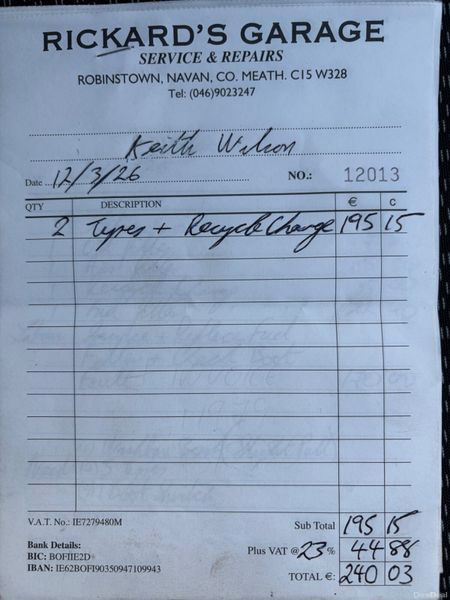 RICKARD'S GARAGE
SERVICE & REPAIRS
ROBINSTOWN, NAVAN, CO. MEATH. C15 W328
Tel: (046)9023247
Keith Wilson
Date 12/3/26 NO.: 12013
QTY DESCRIPTION € c
2 Tyres + Recycle Charge 195 15
V.A.T. No.: IE7279480M
Sub Total 195 15
Bank Details:
Plus VAT @ 23 % 44 88
BIC: BOFIIE2D
IBAN: IE62BOFI90350947109943
TOTAL €: 240 03